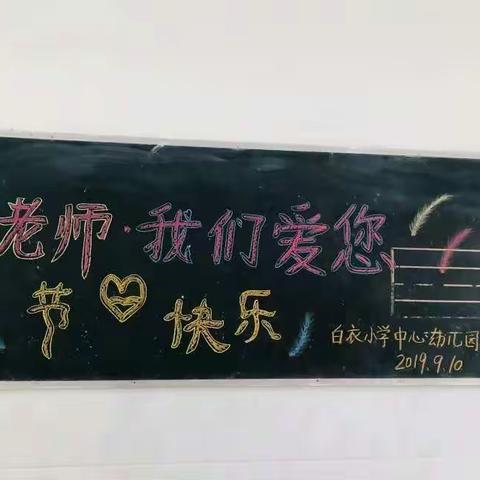 老师·我们爱您
节 快乐
白衣小学中心幼儿园
2019.9.10